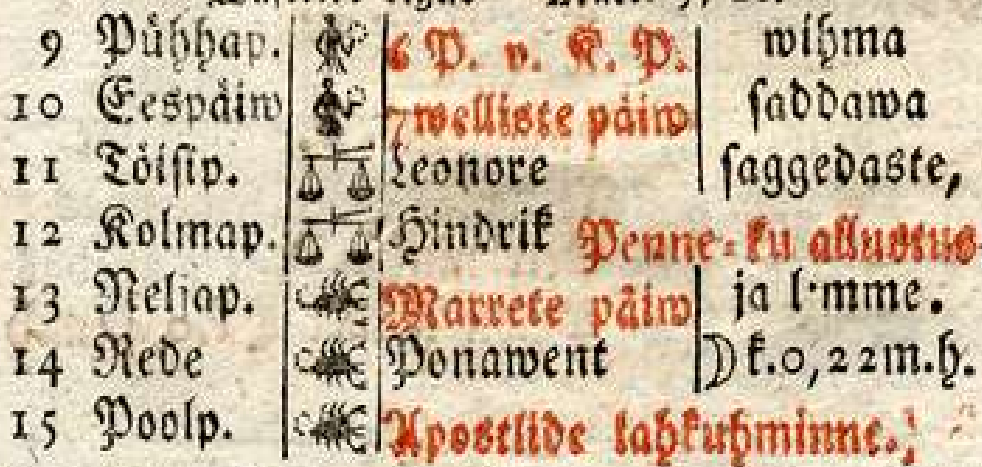 9 Pühhap. 6 P. v. K. P. wihma
10 Eespäiw 7 welliste päiw saddawa
11 Töisip. Leonore saggedaste,
12 Kolmap. Hindrik Penne-ku allustus
13 Neljap. Marrete päiw ja l·mme.
14 Rede Ponawent ☽ k. 0, 22 m. h.
15 Poolp. Apostlide lahkuhminne.